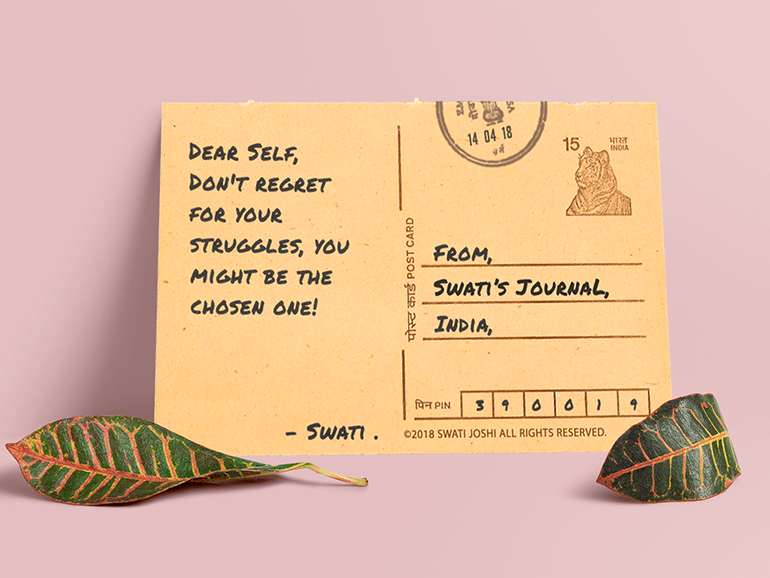 DEAR SELF,
DON'T REGRET
FOR YOUR
STRUGGLES, YOU
MIGHT BE THE
CHOSEN ONE!
- SWATI .
14 04 18
15 भारत
INDIA
पोस्ट कार्ड POST CARD
FROM,
SWATI'S JOURNAL,
INDIA,
पिन PIN 3 9 0 0 1 9
©2018 SWATI JOSHI ALL RIGHTS RESERVED.